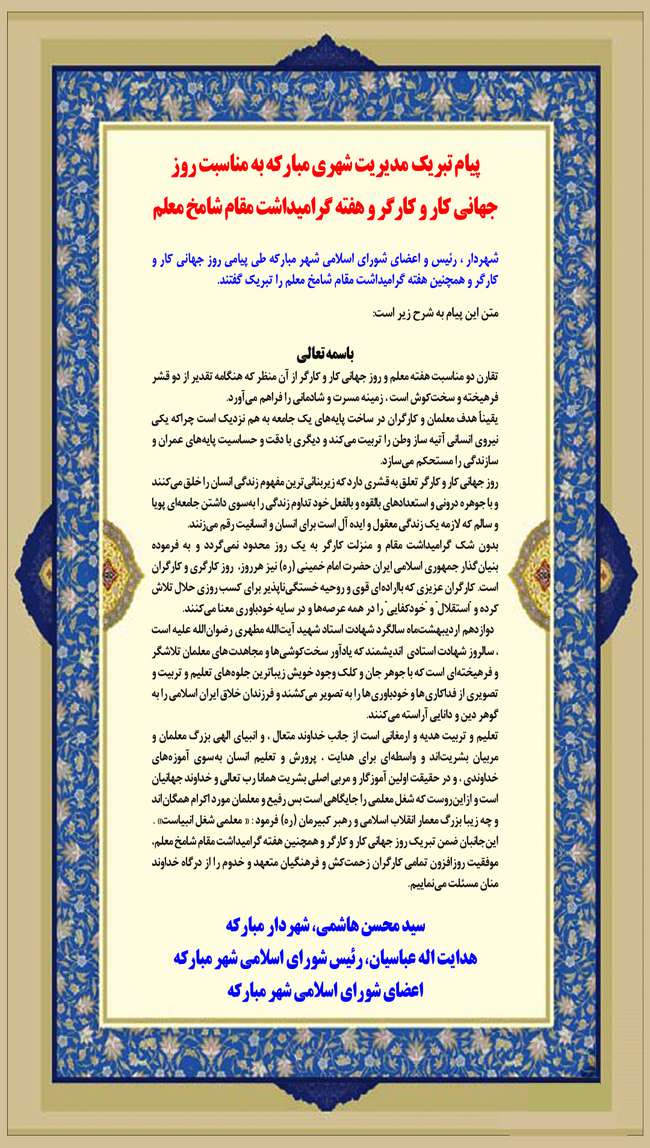 پیام تبریک مدیریت شهری مبارکه به مناسبت روز
جهانی کار و کارگر و هفته گرامیداشت مقام شامخ معلم
شهردار ، رئیس و اعضای شورای اسلامی شهر مبارکه طی پیامی روز جهانی کار و
کارگر و همچنین هفته گرامیداشت مقام شامخ معلم را تبریک گفتند.
متن این پیام به شرح زیر است:
باسمه تعالی
تقارن دو مناسبت هفته معلم و روز جهانی کار و کارگر از آن منظر که هنگامه تقدیر از دو قشر
فرهیخته و سخت‌کوش است ، زمینه مسرت و شادمانی را فراهم می‌آورد.
یقیناً هدف معلمان و کارگران در ساخت پایه‌های یک جامعه به هم نزدیک است چراکه یکی
نیروی انسانی آتیه ساز وطن را تربیت می‌کند و دیگری با دقت و حساسیت پایه‌های عمران و
سازندگی را مستحکم می‌سازد.
روز جهانی کار و کارگر تعلق به قشری دارد که زیربنائی‌ترین مفهوم زندگی انسان را خلق می‌کنند
و با جوهره درونی و استعدادهای بالقوه و بالفعل خود تداوم زندگی را به‌سوی داشتن جامعه‌ای پویا
و سالم که لازمه یک زندگی معقول و ایده آل است برای انسان و انسانیت رقم می‌زنند.
بدون شک گرامیداشت مقام و منزلت کارگر به یک روز محدود نمی‌گردد و به فرموده
بنیان‌گذار جمهوری اسلامی ایران حضرت امام خمینی (ره) نیز هرروز، روز کارگری و کارگران
است. کارگران عزیزی که بااراده‌ای قوی و روحیه خستگی‌ناپذیر برای کسب روزی حلال تلاش
کرده و "استقلال" و "خودکفایی" را در همه عرصه‌ها و در سایه خودباوری معنا می‌کنند.
دوازدهم اردیبهشت‌ماه سالگرد شهادت استاد شهید آیت‌الله مطهری رضوان‌الله علیه است
، سالروز شهادت استادی اندیشمند که یادآور سخت‌کوشی‌ها و مجاهدت‌های معلمان تلاشگر
و فرهیخته‌ای است که با جوهر جان و کلک وجود خویش زیباترین جلوه‌های تعلیم و تربیت و
تصویری از فداکاری‌ها و خودباوری‌ها را به تصویر می‌کشند و فرزندان خلاق ایران اسلامی را به
گوهر دین و دانایی آراسته می‌کنند.
تعلیم و تربیت هدیه و ارمغانی است از جانب خداوند متعال ، و انبیای الهی بزرگ معلمان و
مربیان بشریت‌اند و واسطه‌ای برای هدایت ، پرورش و تعلیم انسان به‌سوی آموزه‌های
خداوندی ، و در حقیقت اولین آموزگار و مربی اصلی بشریت همانا رب تعالی و خداوند جهانیان
است و ازاین‌روست که شغل معلمی را جایگاهی است بس رفیع و معلمان مورد اکرام همگان‌اند
و چه زیبا بزرگ معمار انقلاب اسلامی و رهبر کبیرمان (ره) فرمود : « معلمی شغل انبیاست» .
این‌جانبان ضمن تبریک روز جهانی کار و کارگر و همچنین هفته گرامیداشت مقام شامخ معلم،
موفقیت روزافزون تمامی کارگران زحمت‌کش و فرهنگیان متعهد و خدوم را از درگاه خداوند
منان مسئلت می‌نماییم.
سید محسن هاشمی، شهردار مبارکه
هدایت اله عباسیان، رئیس شورای اسلامی شهر مبارکه
اعضای شورای اسلامی شهر مبارکه